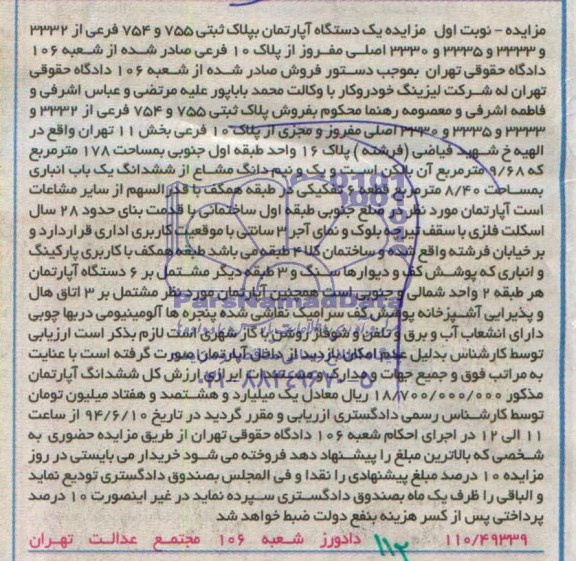 مزایده - نوبت اول مزایده یک دستگاه آپارتمان بپلاک ثبتی ۷۵۵ و ۷۵۴ فرعی از ۳۳۳۲
و ۳۳۳۳ و ۳۳۳۵ و ۳۳۳۰ اصلی مفروز از پلاک ۱۰ فرعی صادر شده از شعبه ۱۰۶
دادگاه حقوقی تهران بموجب دستور فروش صادر شده از شعبه ۱۰۶ دادگاه حقوقی
تهران له شرکت لیزینگ خودروکار با وکالت محمد باباپور علیه مرتضی و عباس اشرفی و
فاطمه اشرفی و معصومه رهنما محکوم بفروش پلاک ثبتی ۷۵۵ و ۷۵۴ فرعی از ۳۳۳۲ و
۳۳۳۳ و ۳۳۳۵ و ۳۳۳۰ اصلی مفروز و مجزی از پلاک ۱۰ فرعی بخش ۱۱ تهران واقع در
الهیه خ شهید فیاضی (فرشته) پلاک ۱۶ واحد طبقه اول جنوبی بمساحت ۱۷۸ مترمربع
که ۹/۶۸ مترمربع آن بالکن است و یک و نیم دانگ مشاع از ششدانگ یک باب انباری
بمساحت ۸/۴۰ مترمربع قطعه ۶ تفکیکی در طبقه همکف با قدرالسهم از سایر مشاعات
است آپارتمان مورد نظر در ضلع جنوبی طبقه اول ساختمانی با قدمت بنای حدود ۲۸ سال
اسکلت فلزی با سقف تیرچه بلوک و نمای آجر ۳ سانتی با موقعیت کاربری اداری قرار دارد و
بر خیابان فرشته واقع شده و ساختمان کلا ۴ طبقه می باشد طبقه همکف با کاربری پارکینگ
و انباری که پوشش کف و دیوارها سنگ و ۳ طبقه دیگر مشتمل بر ۶ دستگاه آپارتمان
هر طبقه ۲ واحد شمالی و جنوبی است همچنین آپارتمان مورد نظر مشتمل بر ۳ اتاق هال
و پذیرایی آشپزخانه پوشش کف سرامیک نقاشی شده پنجره ها آلومینیومی دربها چوبی
دارای انشعاب آب و برق و تلفن و شوفاژ روشن با گاز شهری است لازم بذکر است ارزیابی
توسط کارشناس بدلیل عدم امکان بازدید از داخل آپارتمان صورت گرفته است با عنایت
به مراتب فوق و جمیع جهات و مدارک و مستندات ابرازی ارزش کل ششدانگ آپارتمان
مذکور ۱۸/۷۰۰/۰۰۰/۰۰۰ ریال معادل یک میلیارد و هشتصد و هفتاد میلیون تومان
توسط کارشناس رسمی دادگستری ارزیابی و مقرر گردید در تاریخ ۹۴/۶/۱۰ از ساعت
۱۱ الی ۱۲ در اجرای احکام شعبه ۱۰۶ دادگاه حقوقی تهران از طریق مزایده حضوری به
شخصی که بالاترین مبلغ را پیشنهاد دهد فروخته می شود خریدار می بایستی در روز
مزایده ۱۰ درصد مبلغ پیشنهادی را نقدا و فی المجلس بصندوق دادگستری تودیع نماید
و الباقی را ظرف یک ماه بصندوق دادگستری سپرده نماید در غیر اینصورت ۱۰ درصد
پرداختی پس از کسر هزینه بنفع دولت ضبط خواهد شد
۱۱۰/۴۹۳۳۹ دادورز شعبه ۱۰۶ مجتمع عدالت تهران
۱۱۲
ParsNamadData
۰۲۱-۸۸۳۴۹۶۷۰-۵